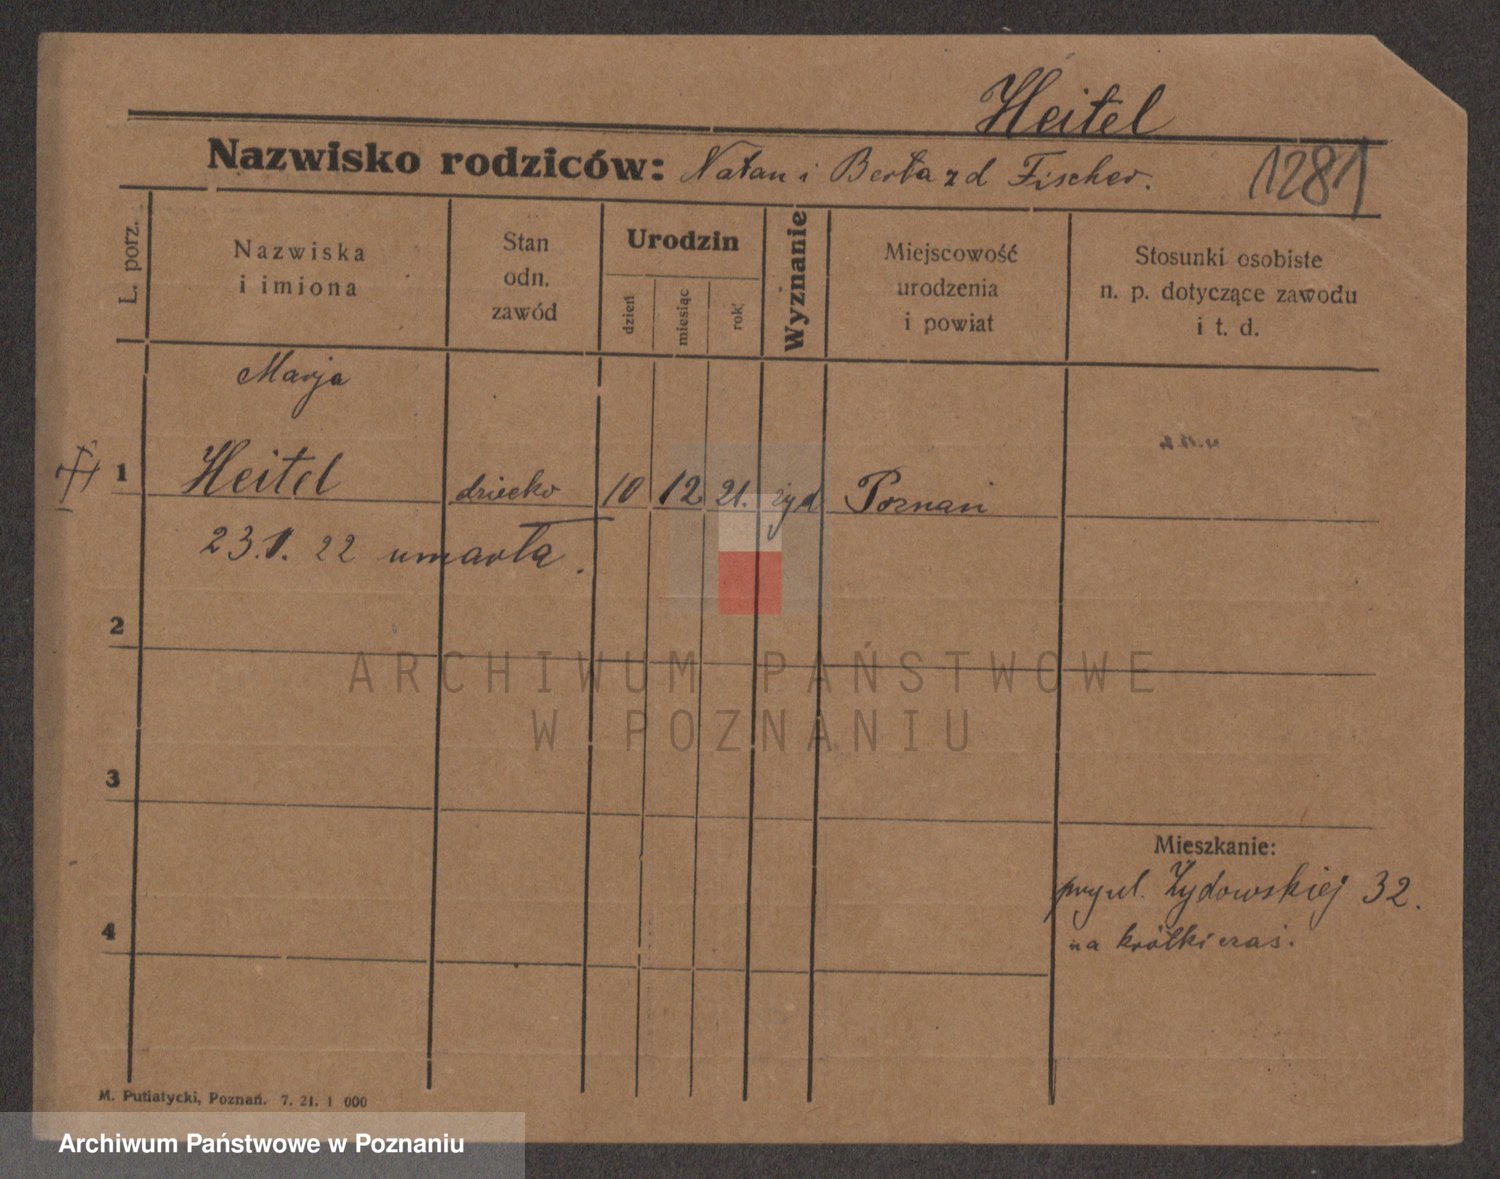 Heitel
Nazwisko rodziców: Natan i Berta z d Fischer.
1281
L. porz.
Nazwiska
i imiona
Stan
odn.
zawód
Urodzin
dzień
miesiąc
rok
Wyznanie
Miejscowość
urodzenia
i powiat
Stosunki osobiste
n. p. dotyczące zawodu
i t. d.
Marja
1 Heitel dziecko 10 12 21. żyd Poznań
23.1. 22 umarła.
2
ARCHIWUM PAŃSTWOWE
W POZNANIU
3
Mieszkanie:
przy ul. Żydowskiej 32.
na krótki czas.
4
M. Putiatycki, Poznań. 7. 21. 1 000
Archiwum Państwowe w Poznaniu